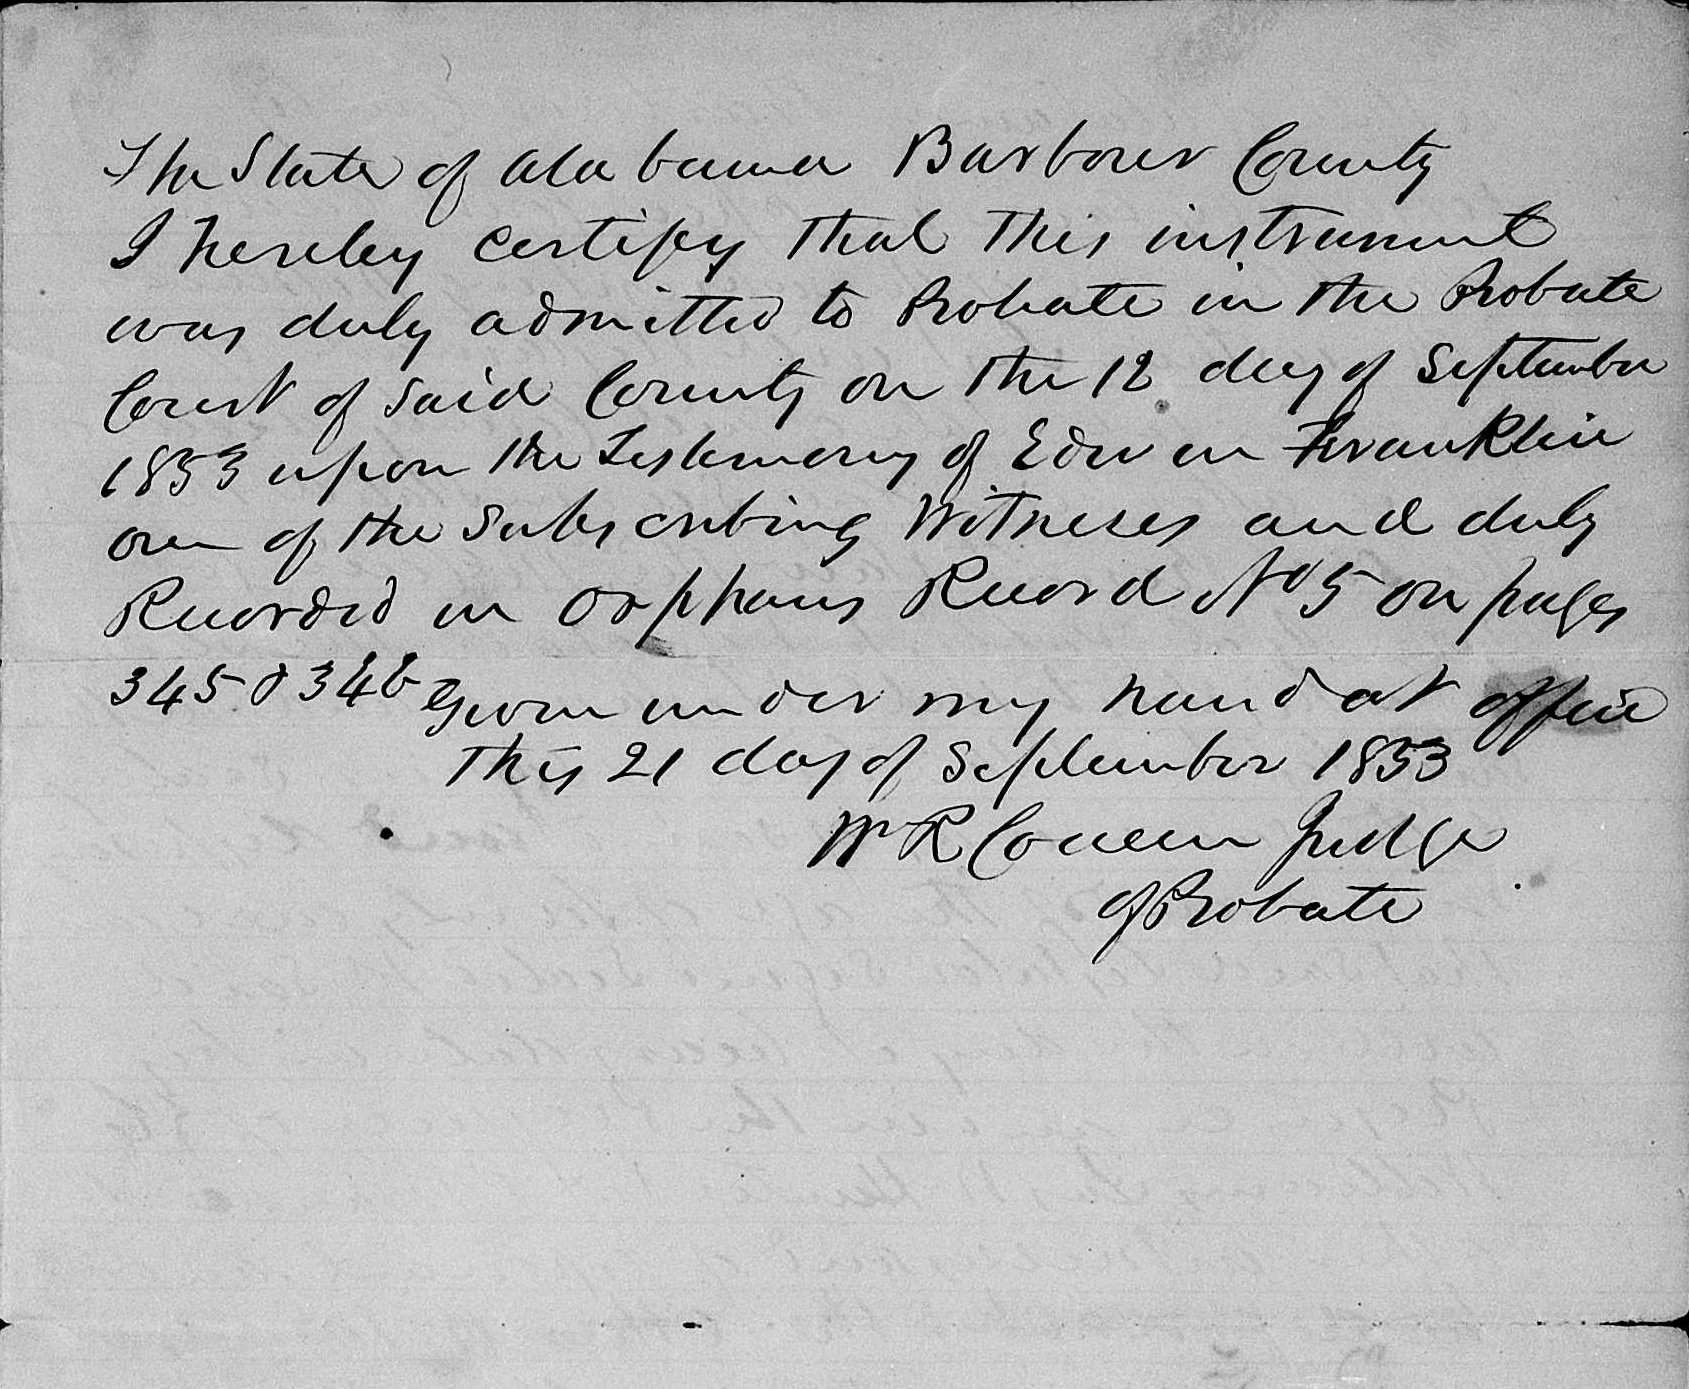 The State of Alabama Barbour County
I hereby certify that this instrument
was duly admitted to Probate in the Probate
Court of Said County on the 12 day of September
1853 upon the Testemony of Edwin Franklin
one of the Subscribing Witneses and duly
Recorded in Orphans Record No 5 on pages
345 & 346 Given under my hand at office
This 21 day of September 1853
Wm R Cowen Judge
of Probate